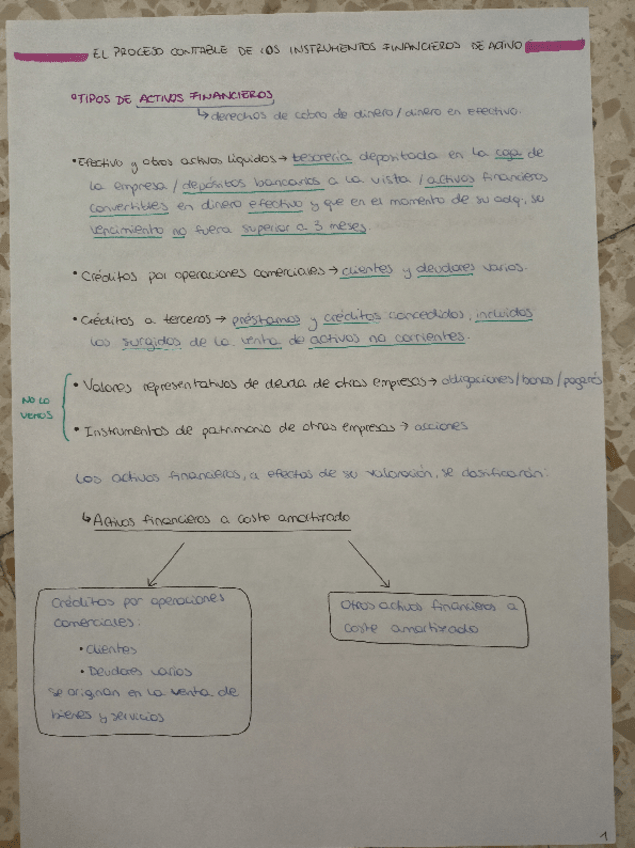 EL PROCESO CONTABLE DE LOS INSTRUMENTOS FINANCIEROS DE ACTIVO
TIPOS DE ACTIVOS FINANCIEROS
↳ derechos de cobro de dinero/dinero en efectivo.
• Efectivo y otros activos líquidos → tesorería depositada en la caja de
la empresa / depósitos bancarios a la vista / activos financieros
convertibles en dinero efectivo y que en el momento de su adq., su
vencimiento no fuera superior a 3 meses.
• Créditos por operaciones comerciales → clientes y deudores varios.
• Créditos a terceros → préstamos y créditos concedidos, incluidos
los surgidos de la venta de activos no corrientes.
NO LO
VEMOS
• Valores representativos de deuda de otras empresas → obligaciones/bonos/pagarés
• Instrumentos de patrimonio de otras empresas → acciones
Los activos financieros, a efectos de su valoración, se clasificarán:
↳ Activos financieros a coste amortizado
Créditos por operaciones
comerciales:
• Clientes
• Deudores varios
se originan en la venta de
bienes y servicios
Otros activos financieros a
coste amortizado
1